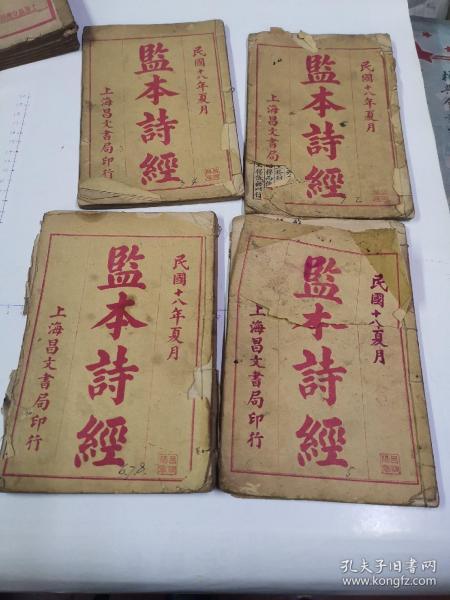 民國十八年夏月
監本詩經
上海昌文書局印行
民國十八年夏月
監本詩經
上海昌文書局
民國十八年夏月
監本詩經
上海昌文書局印行
678
民國十八夏月
監本詩經
上海昌文書局印行
5
孔夫子旧书网
www.kongfz.com